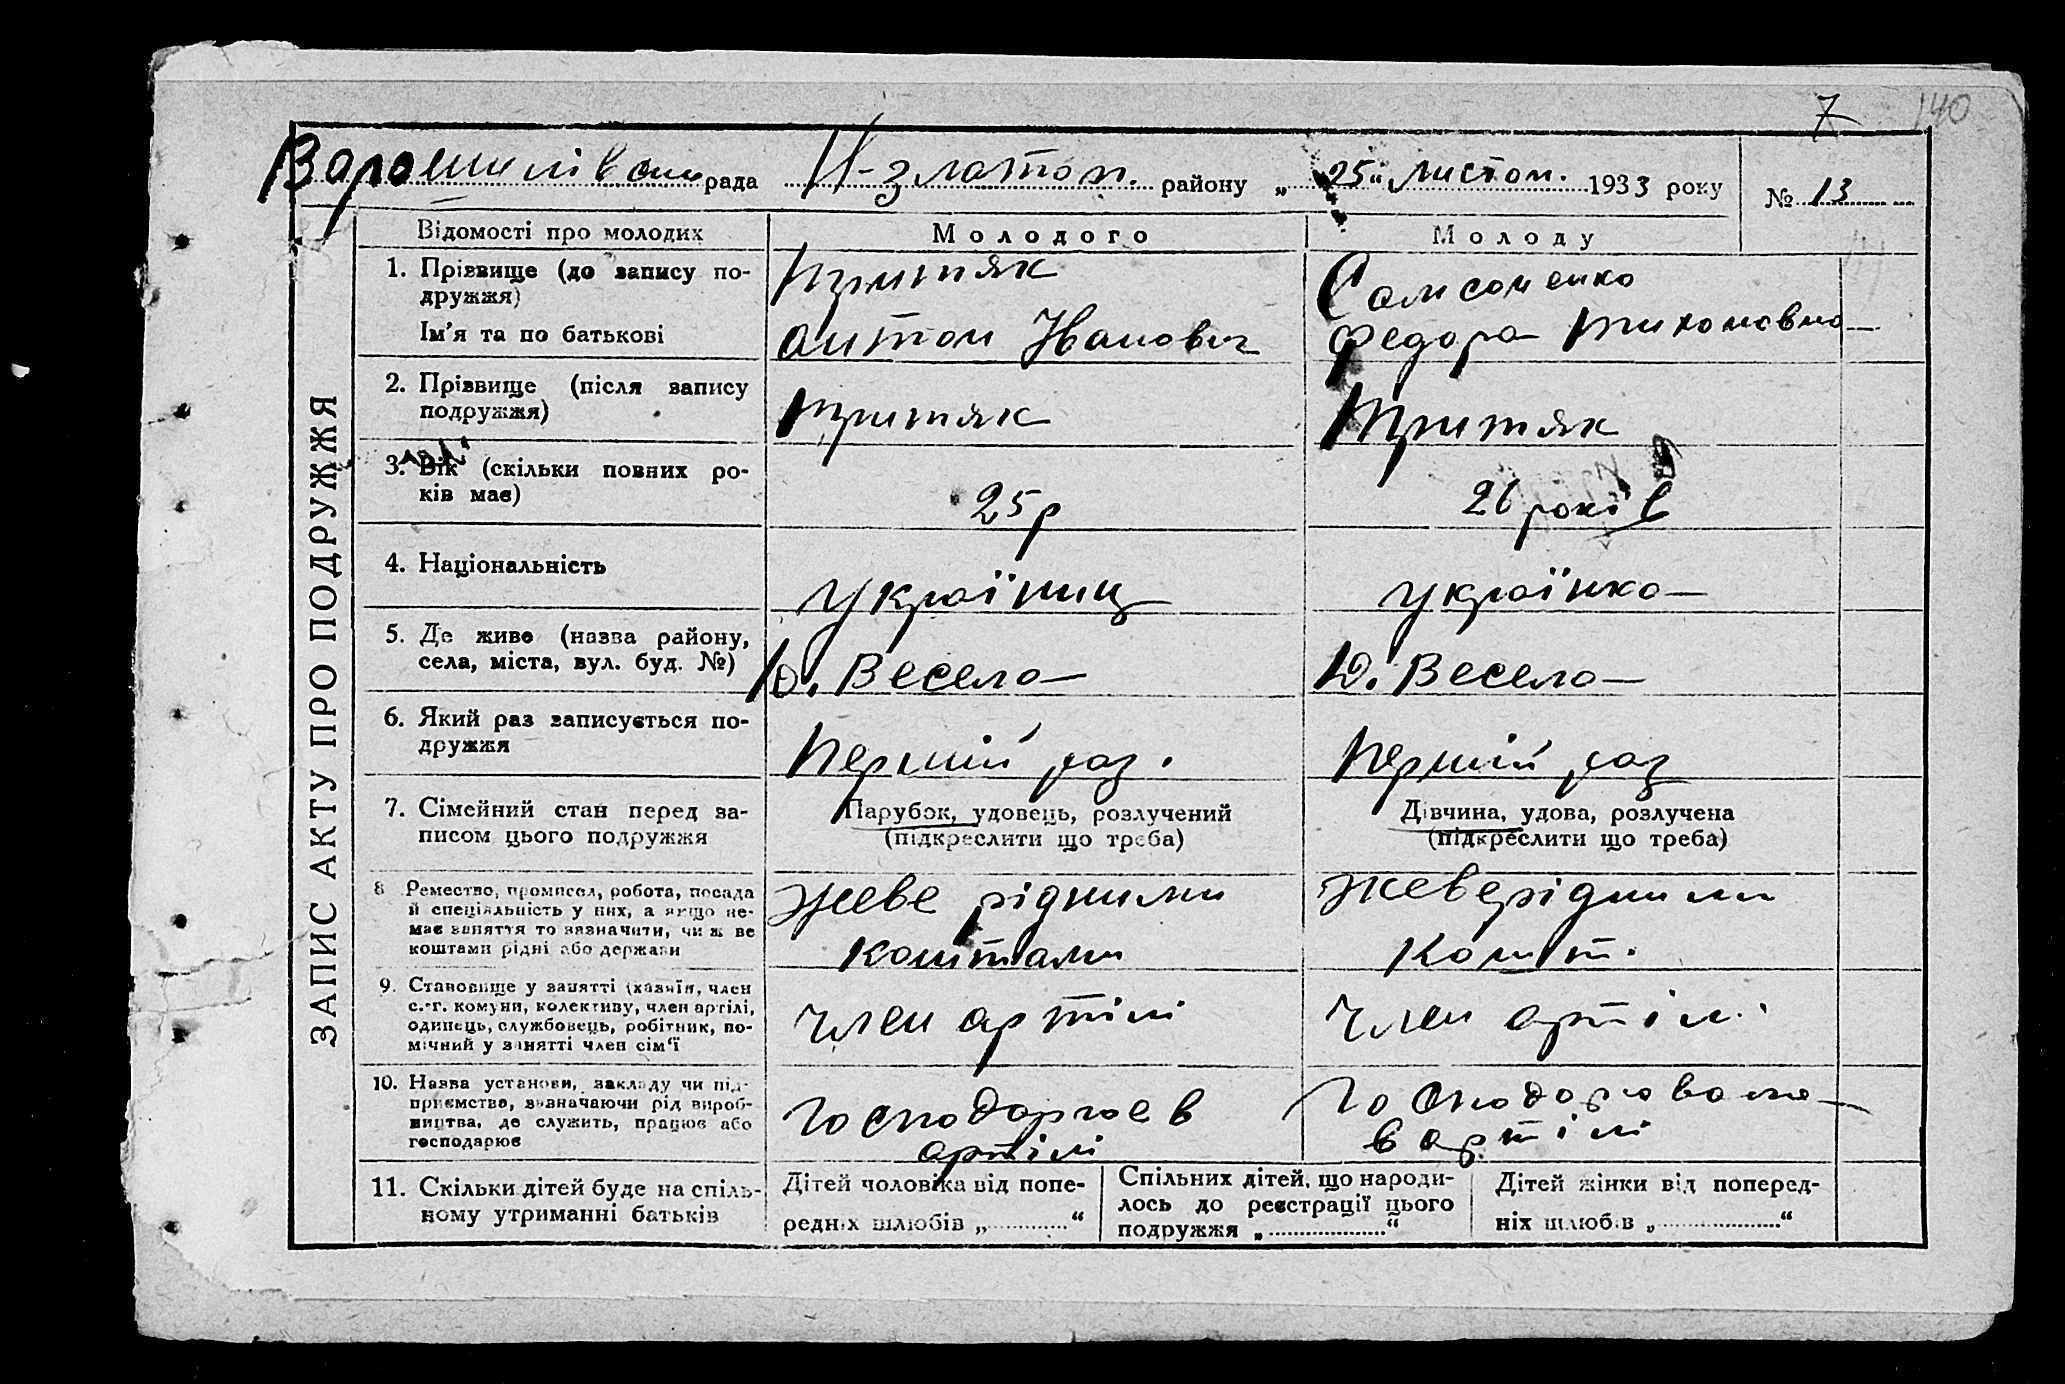 7 140
Ворошилівська рада Н-златоп. району „25“ листоп. 1933 року № 13
ЗАПИС АКТУ ПРО ПОДРУЖЖЯ
Відомості про молодих Молодого Молоду
1. Прізвище (до запису по-
дружжя)
Притяк
Самсоненко
Ім'я та по батькові
Антон Іванович
Федора Тихоновна
2. Прізвище (після запису
подружжя)
Притяк
Притяк
3. Вік (скільки повних ро-
ків має)
25 р
26 років
4. Національність
Україниц
українка
5. Де живе (назва району,
села, міста, вул. буд. №)
Д. Весела
Д. Весела
6. Який раз записується по-
дружжя
Перший раз.
Перший раз
7. Сімейний стан перед за-
писом цього подружжя
Парубок, удовець, розлучений
(підкреслити що треба)
Дівчина, удова, розлучена
(підкреслити що треба)
8 Ремество, промисел, робота, посада
й спеціяльність у них, а якщо не-
має заняття то зазначити, чи ж ве
коштами рідні або держави
жеве рідними
коштами
жеве рідними
кошт.
9. Становище у занятті (хазяїн, член
с.-г. комуни, колективу, член артілі,
одинець, службовець, робітник, по-
мічний у занятті член сім'ї
член артілі
член артілі
10. Назва установи, закладу чи під-
приємства, зазначаючи рід вироб-
ництва, де служить, працює або
господарює
Господарює в
артілі
в артілі
11. Скільки дітей буде на спіль-
ному утриманні батьків
Дітей чоловіка від попе-
редніх шлюбів „............“
Спільних дітей, що народи-
лось до реєстрації цього
подружжя „............“
Дітей жінки від поперед-
ніх шлюбів „............“